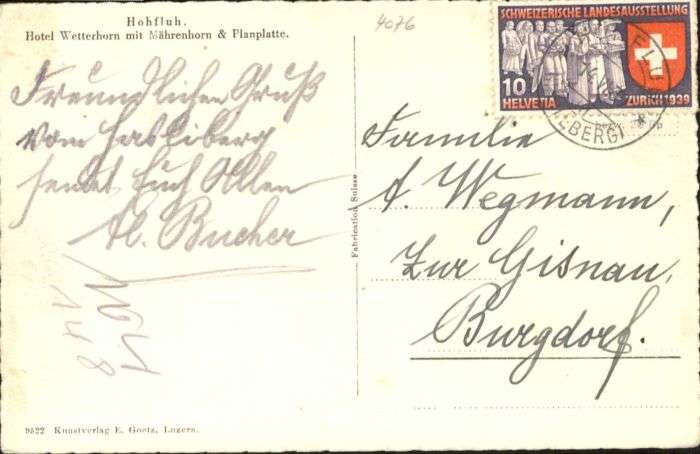 Hohfluh.
Hotel Wetterhorn mit Mährenhorn & Planplatte.
4076
SCHWEIZERISCHE LANDESAUSSTELLUNG
10
HELVETIA
ZURICH 1939
Freundlichen Gruß
vom Hasliberg
sendet Euch Allen
Al. Bucher
Fabrication Suisse
Familie
A. Wegmann,
Zur Gisnau,
Burgdorf.
9522 Kunstverlag E. Goetz, Luzern.